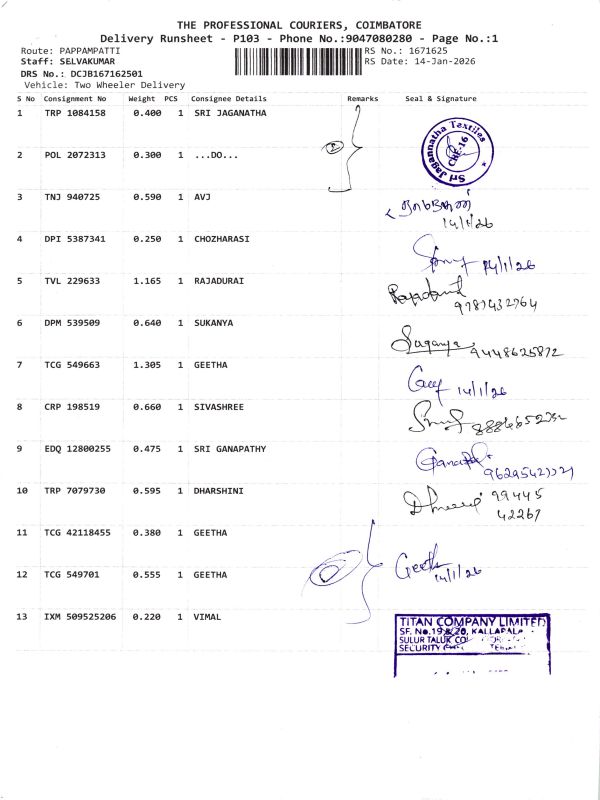 THE PROFESSIONAL COURIERS, COIMBATORE
Delivery Runsheet - P103 - Phone No.:9047080280 - Page No.:1
Route: PAPPAMPATTI RS No.: 1671625
Staff: SELVAKUMAR RS Date: 14-Jan-2026
DRS No.: DCJB167162501
Vehicle: Two Wheeler Delivery
S No Consignment No Weight PCS Consignee Details Remarks Seal & Signature
1 TRP 1084158 0.400 1 SRI JAGANATHA
Sri Jagannatha Textiles
CBE-16
2 POL 2072313 0.300 1 ...DO...
2
3 TNJ 940725 0.590 1 AVJ
14/1/26
4 DPI 5387341 0.250 1 CHOZHARASI
14/1/26
5 TVL 229633 1.165 1 RAJADURAI
9787432764
6 DPM 539509 0.640 1 SUKANYA
Suganya 9448625872
7 TCG 549663 1.305 1 GEETHA
14/1/26
8 CRP 198519 0.660 1 SIVASHREE
9 EDQ 12800255 0.475 1 SRI GANAPATHY
10 TRP 7079730 0.595 1 DHARSHINI
99445
42267
11 TCG 42118455 0.380 1 GEETHA
12 TCG 549701 0.555 1 GEETHA
2 Geetha
14/1/26
13 IXM 509525206 0.220 1 VIMAL
TITAN COMPANY LIMITED
SF. No.19&20, KALLAPALA
SULUR TALUK
SECURITY